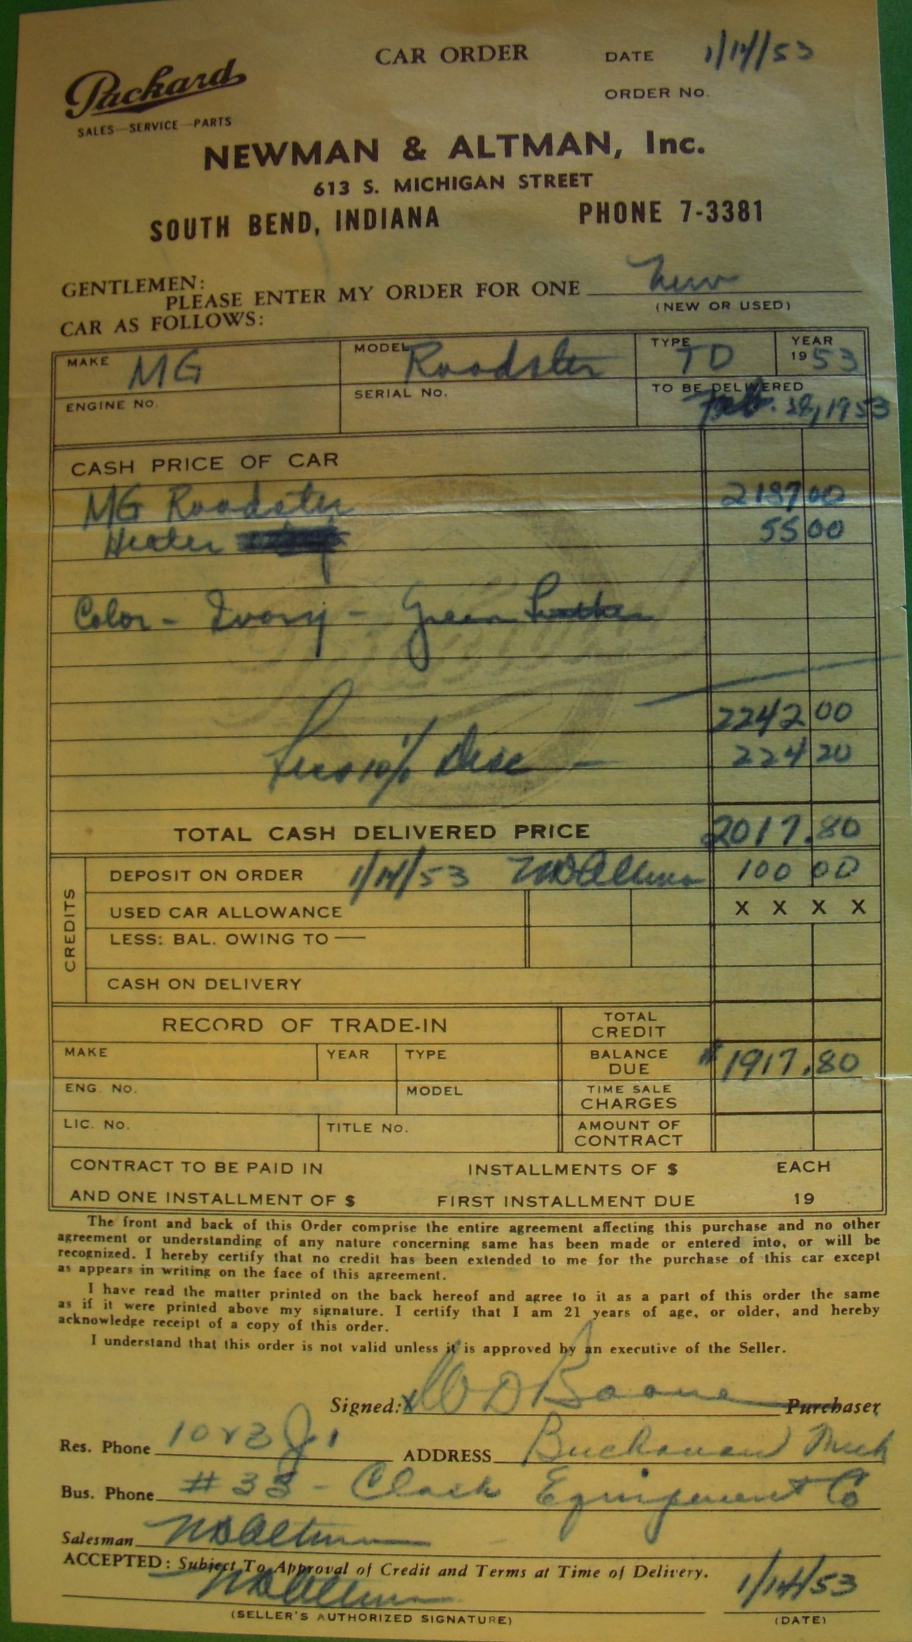 Packard
SALES—SERVICE—PARTS
CAR ORDER
DATE 1/14/53
ORDER No.
NEWMAN & ALTMAN, Inc.
613 S. MICHIGAN STREET
SOUTH BEND, INDIANA PHONE 7-3381
GENTLEMEN:
PLEASE ENTER MY ORDER FOR ONE New
(NEW OR USED)
CAR AS FOLLOWS:
MAKE MG MODEL Roadster TYPE TD YEAR 1953
ENGINE No. SERIAL No. TO BE DELIVERED Feb. 28, 1953
CASH PRICE OF CAR
MG Roadster 2187 00
Heater 55 00
Color - Ivory - Green Leather
2242 00
Less 10% Disc — 224 20
TOTAL CASH DELIVERED PRICE 2017.80
CREDITS
DEPOSIT ON ORDER 1/14/53 100 00
USED CAR ALLOWANCE X X X X
LESS: BAL. OWING TO —
CASH ON DELIVERY
RECORD OF TRADE-IN TOTAL CREDIT
MAKE YEAR TYPE BALANCE DUE $1917.80
ENG. No. MODEL TIME SALE CHARGES
LIC. No. TITLE No. AMOUNT OF CONTRACT
CONTRACT TO BE PAID IN INSTALLMENTS OF $ EACH
AND ONE INSTALLMENT OF $ FIRST INSTALLMENT DUE 19
The front and back of this Order comprise the entire agreement affecting this purchase and no other
agreement or understanding of any nature concerning same has been made or entered into, or will be
recognized. I hereby certify that no credit has been extended to me for the purchase of this car except
as appears in writing on the face of this agreement.
I have read the matter printed on the back hereof and agree to it as a part of this order the same
as if it were printed above my signature. I certify that I am 21 years of age, or older, and hereby
acknowledge receipt of a copy of this order.
I understand that this order is not valid unless it is approved by an executive of the Seller.
Signed: X D Boone Purchaser
Res. Phone ADDRESS Buchanan Mich
Bus. Phone #33 - Clark Equipment Co
Salesman
ACCEPTED: Subject To Approval of Credit and Terms at Time of Delivery.
1/14/53
(SELLER'S AUTHORIZED SIGNATURE) (DATE)